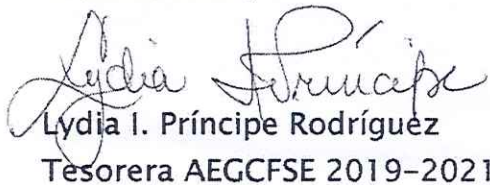 Lydia I. Príncipe
Lydia I. Príncipe Rodríguez
Tesorera AEGCFSE 2019-2021